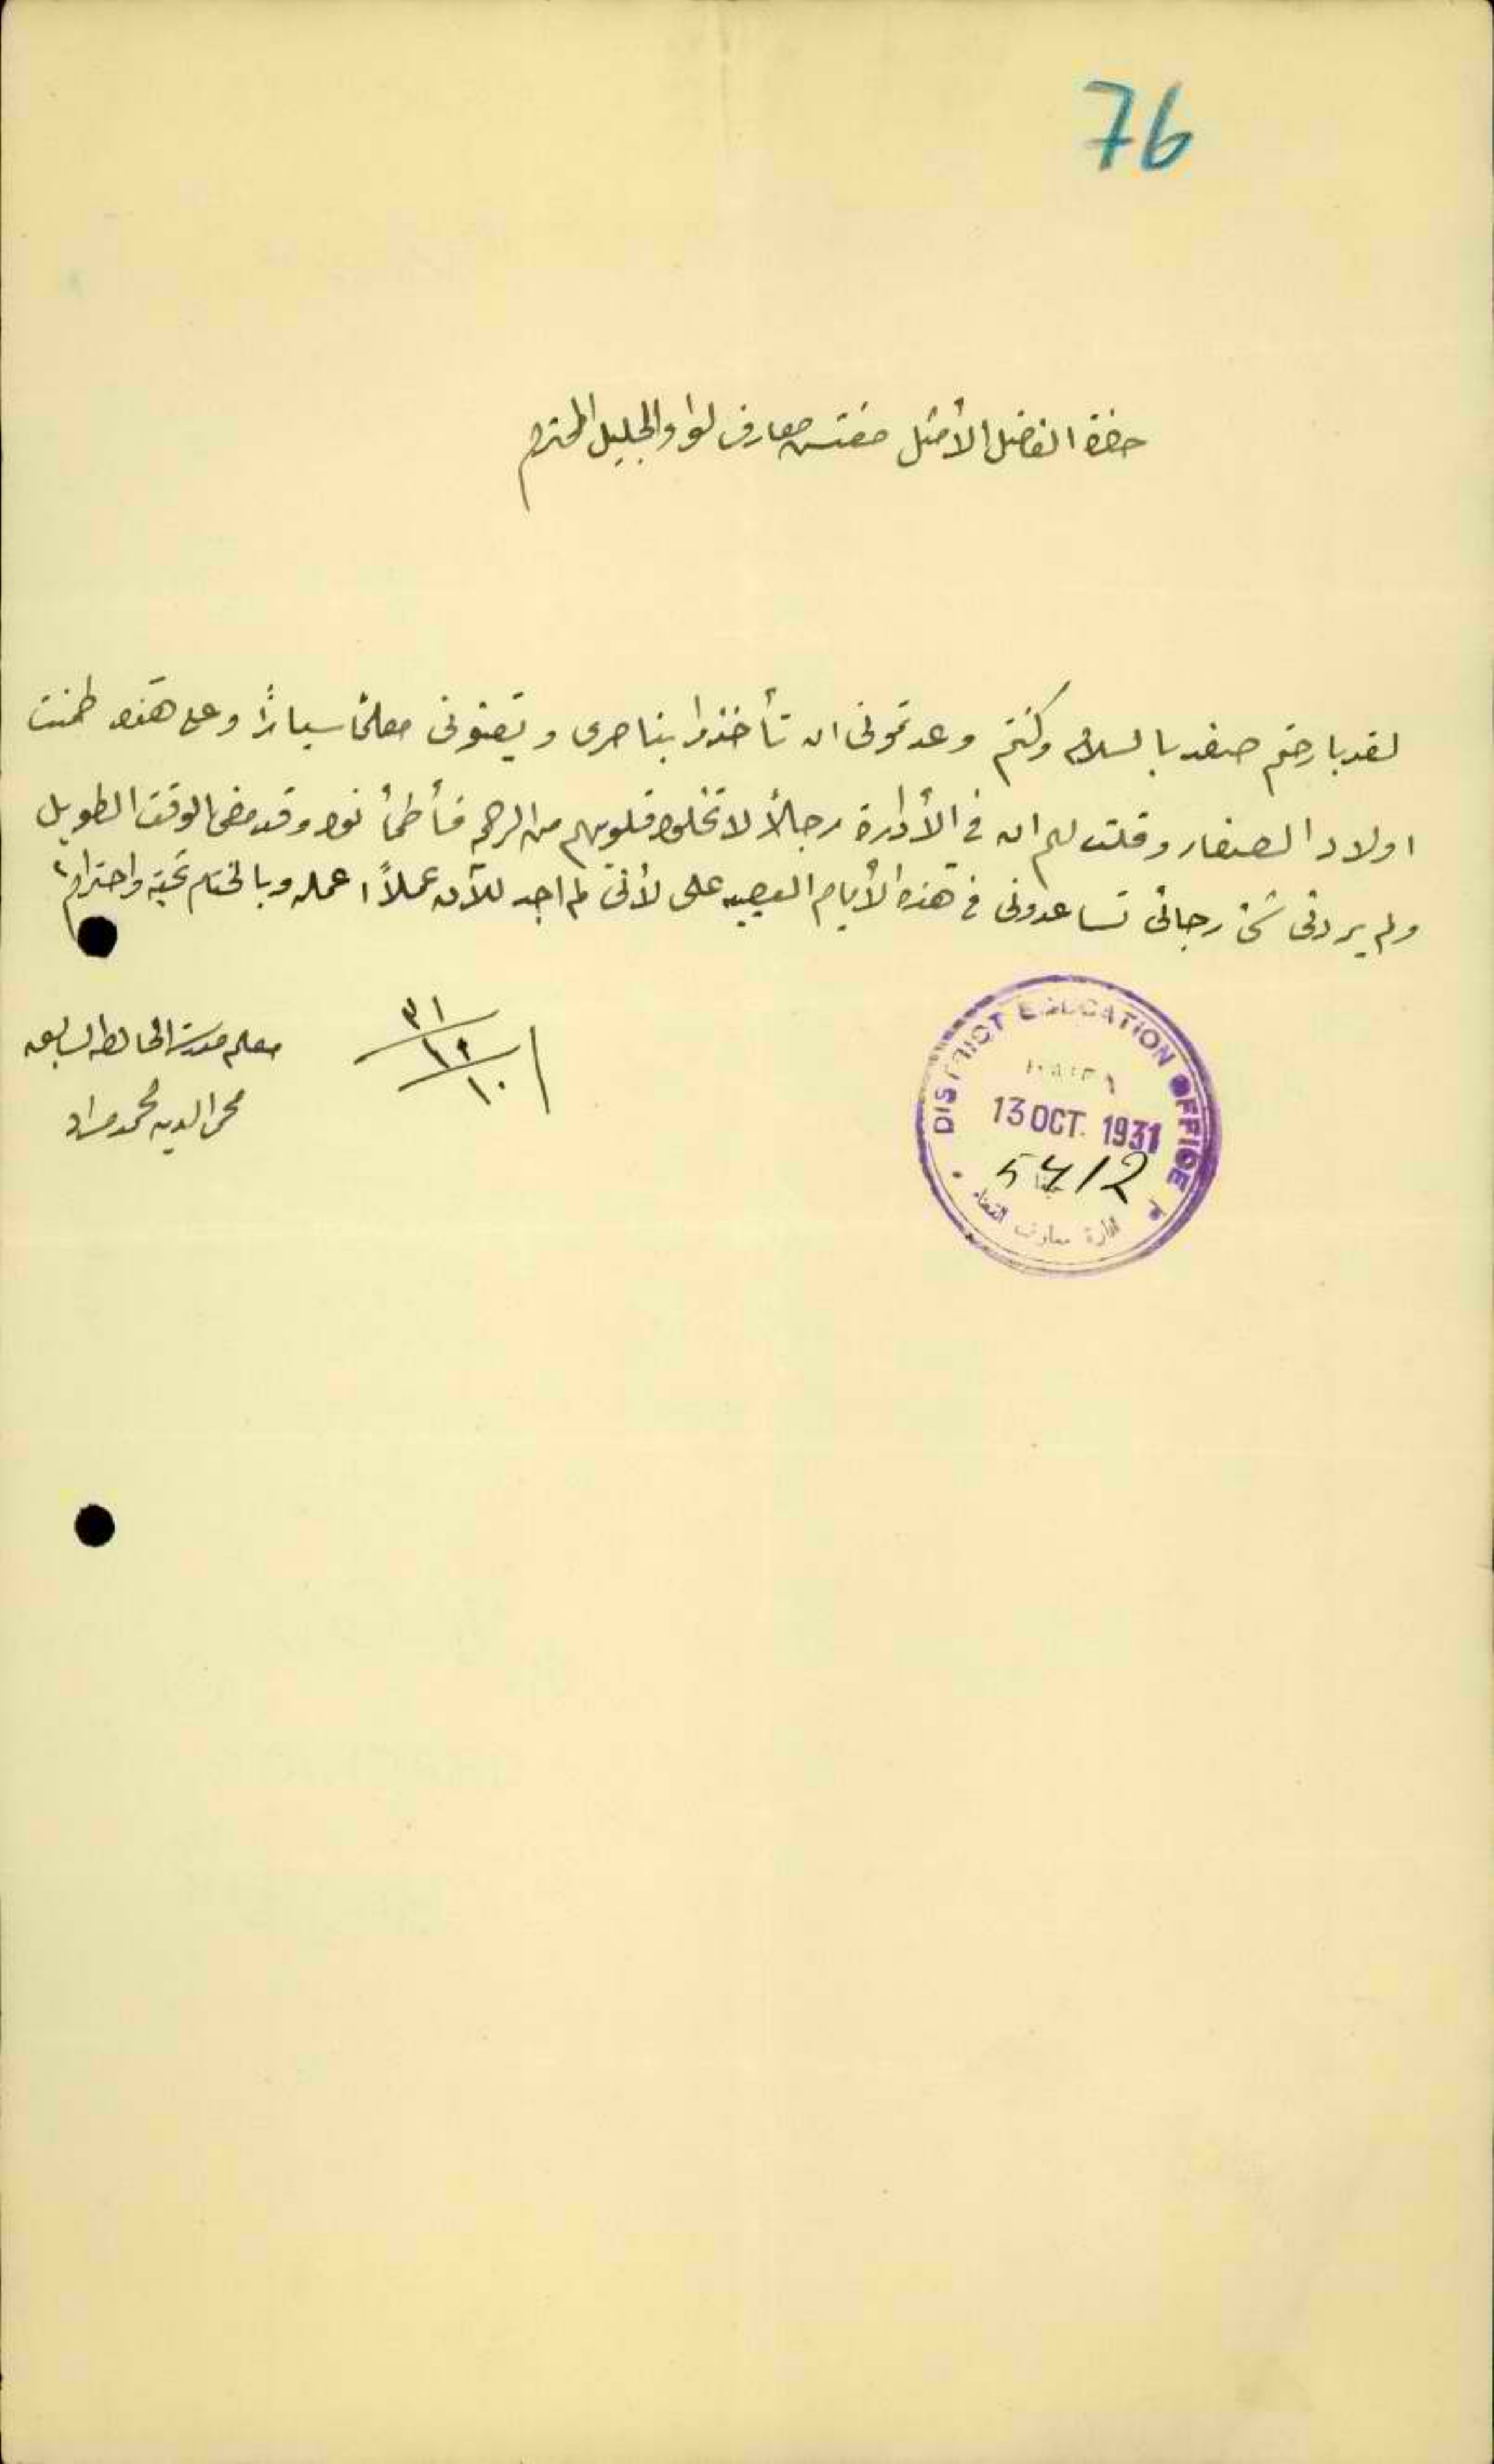 76
حضرة الفاضل الأمثل مفتش معارف لواء الجليل المحترم
لقد بارحتم صفد بالسلامه وكنتم وعدتمونى ان تأخذوا بناصرى و تعينونى معلماً سياراً وعلى هذه طمنت
اولاد الصغار وقلت لهم ان في الأدارة رجالاً لا تخلو قلوبهم من الرحمه فأطمأنوا وقد مضى الوقت الطويل
ولم يردنى شئ رجائى تساعدونى في هذه الأيام العصيبه على لأنى لم اجد للآن عملاً اعمله وبالختام تحية واحتراماً
٣١
١٠
معلم مدرسة الخالصه السابق
محى الدين محمد مراد
DISTRICT EDUCATION OFFICE
HAIFA
13 OCT. 1931
5412
ادارة معارف القضاء